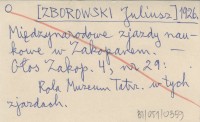 [ZBOROWSKI Juliusz] 1926.
Międzynarodowe zjazdy nau-
kowe w Zakopanem. —
Głos Zakop. 4, nr 29:
Rola Muzeum Tatr. w tych
zjazdach.